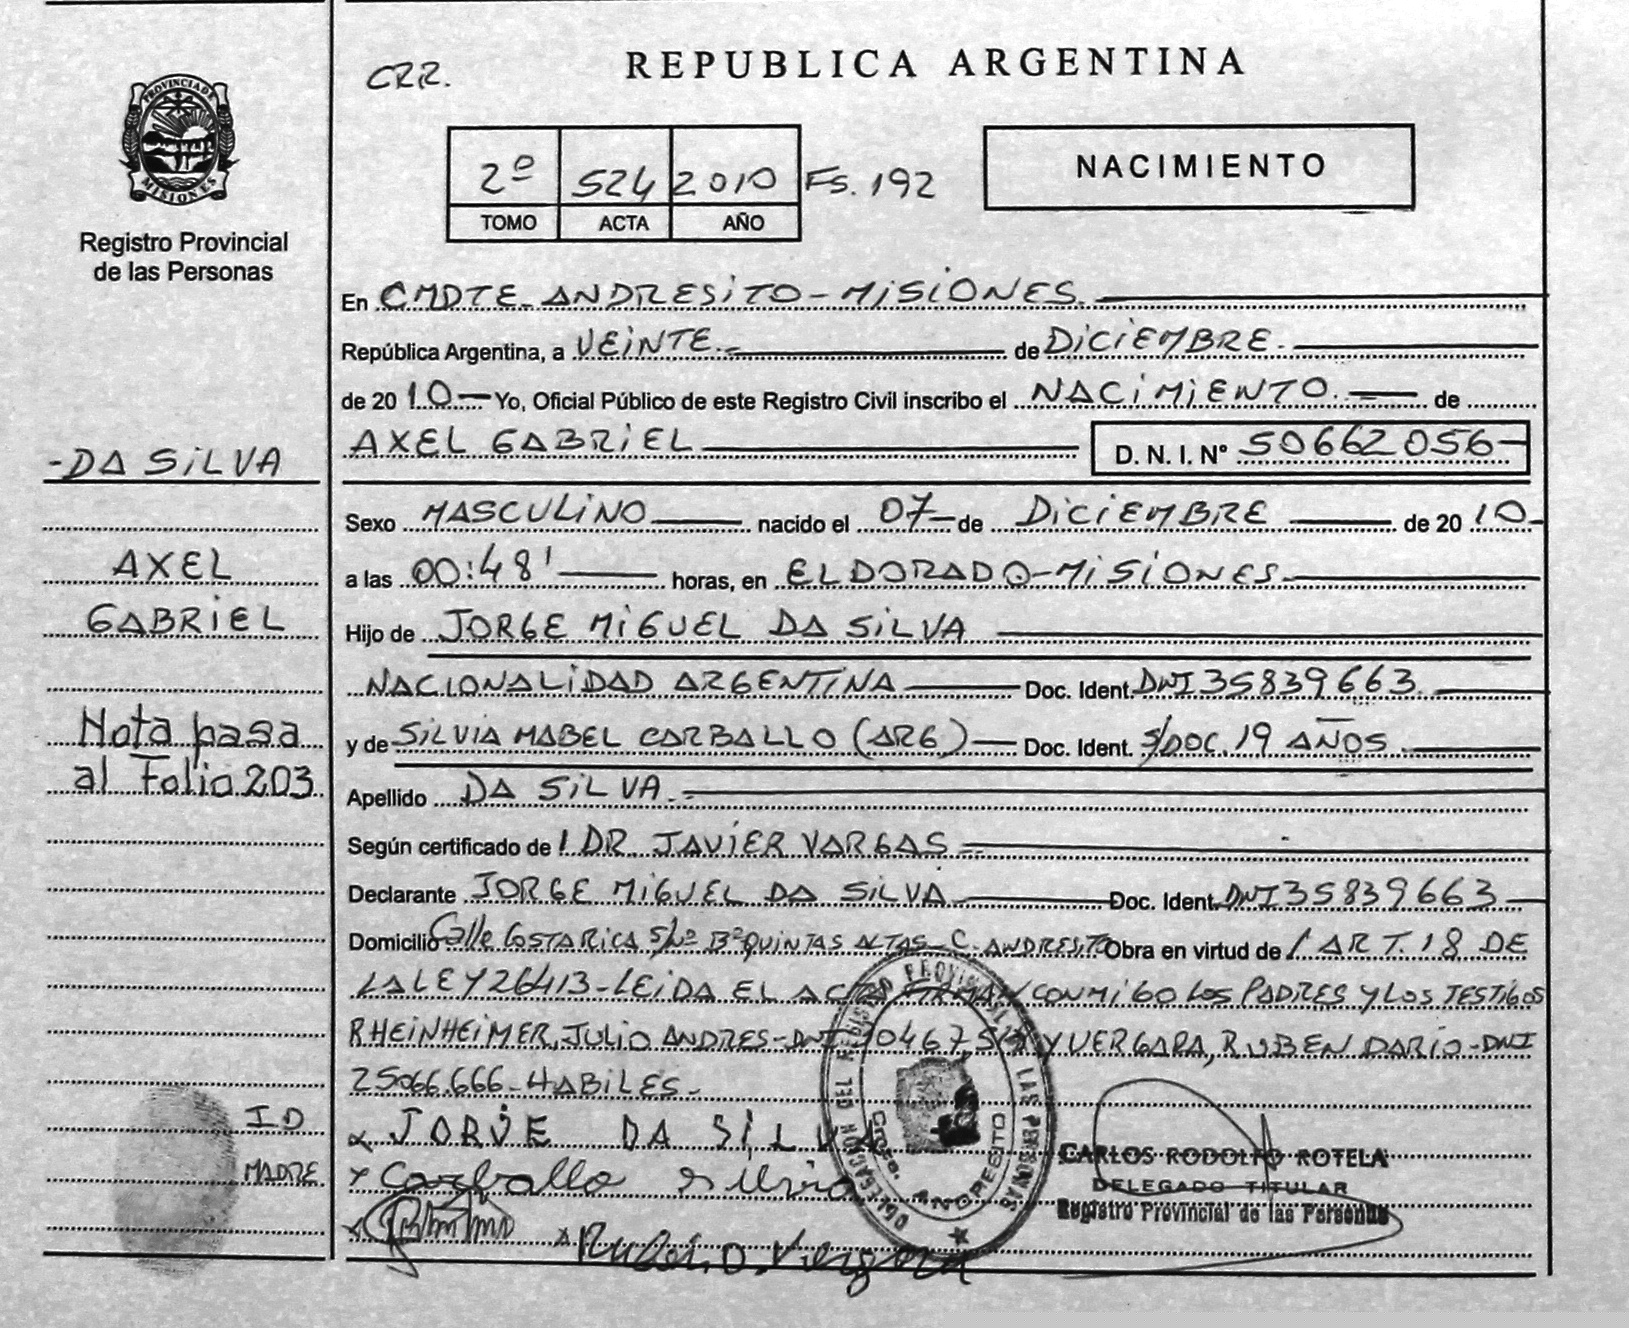 CRR.
REPUBLICA ARGENTINA
PROVINCIA DE
MISIONES
Registro Provincial
de las Personas
2º 524 2010 Fs. 192
TOMO ACTA AÑO
NACIMIENTO
En CMDTE. ANDRESITO - MISIONES.
República Argentina, a VEINTE.- de DICIEMBRE.
de 20 10.- Yo, Oficial Público de este Registro Civil inscribo el NACIMIENTO. de
AXEL GABRIEL D. N. I. Nº 50662056-
Sexo MASCULINO nacido el 07 de DICIEMBRE de 20 10-
a las 00:48' horas, en ELDORADO-MISIONES.
Hijo de JORGE MIGUEL DA SILVA
NACIONALIDAD ARGENTINA Doc. Ident. DNI 35839663.
y de SILVIA MABEL CARBALLO (ARG) Doc. Ident. S/DOC. 19 AÑOS.
Apellido DA SILVA.-
Según certificado de / DR. JAVIER VARGAS
Declarante JORGE MIGUEL DA SILVA Doc. Ident. DNI 35839663
Domicilio Calle COSTA RICA S/Nº Bº QUINTAS ALTAS - C. ANDRESITO Obra en virtud de / ART. 18 DE
LA LEY 26413 - LEIDA EL ACTA FIRMAN CONMIGO LOS PADRES Y LOS TESTIGOS
RHEINHEIMER, JULIO ANDRES - DNI Y VERGARA, RUBEN DARIO - DNI
25066.666 - HABILES.-
JORJE DA SILVA
Carballo Silvia
Ruben D. Vergara
-DA SILVA
AXEL
GABRIEL
Nota pasa
al Folio 203
I.D
MADRE
DELEGACION DEL REGISTRO PROVINCIAL DE LAS PERSONAS
Cmte. ANDRESITO
CARLOS RODOLFO ROTELA
DELEGADO TITULAR
Registro Provincial de las Personas